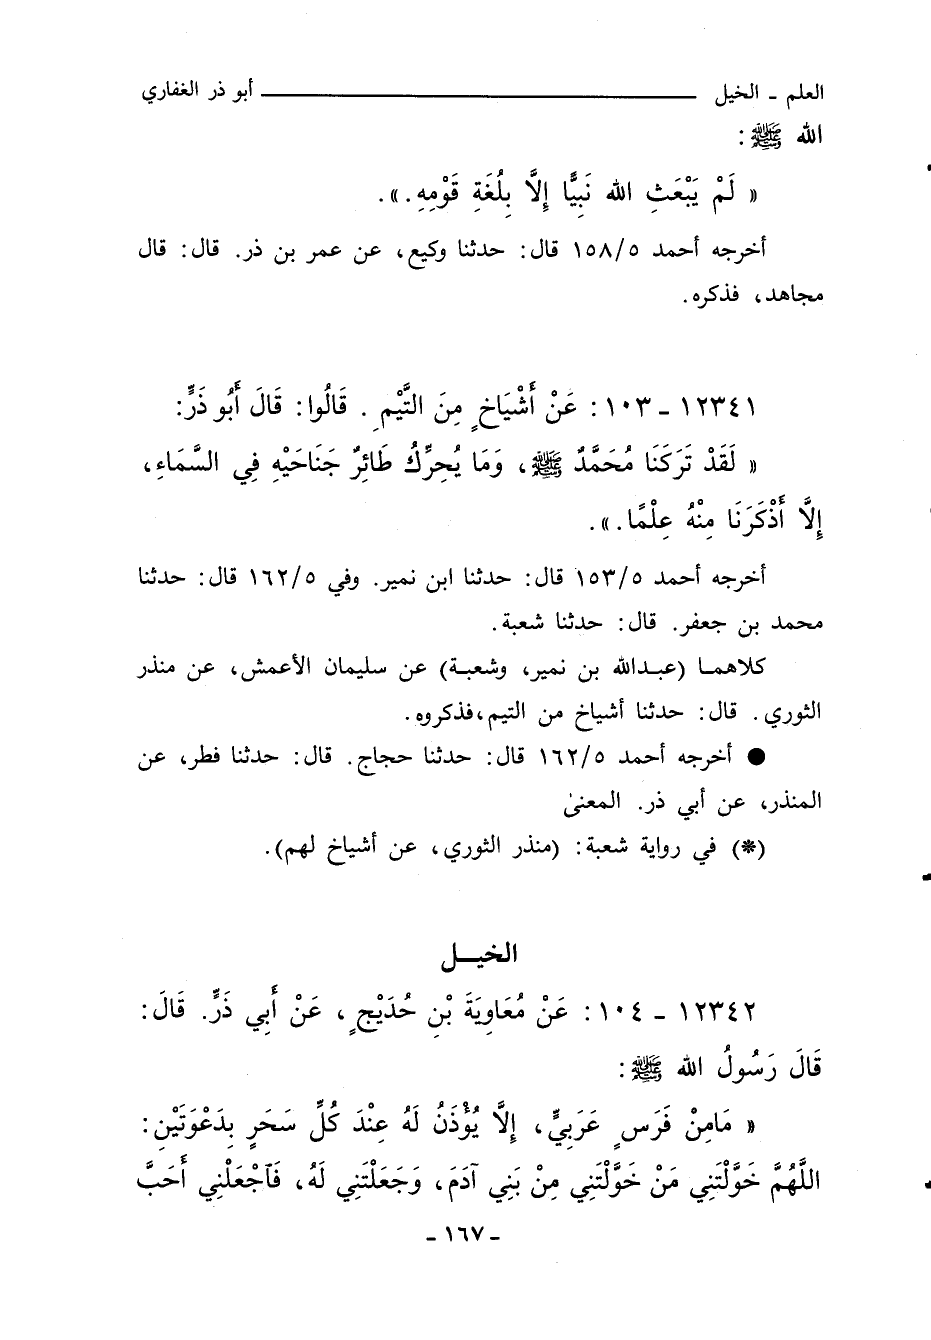 العلم - الخيل ـــــــــــــــــــــــــــــــــــــــــــ أبو ذر الغفاري
الله ﷺ :
« لَمْ يَبْعَثِ الله نَبِيًّا إِلَّا بِلُغَةِ قَوْمِهِ . ».
أخرجه أحمد ١٥٨/٥ قال: حدثنا وكيع، عن عمر بن ذر. قال: قال
مجاهد، فذكره.
١٢٣٤١ - ١٠٣ : عَنْ أَشْيَاخٍ مِنَ التَّيْمِ . قَالُوا: قَالَ أَبُو ذَرٍّ:
« لَقَدْ تَرَكَنَا مُحَمَّدٌ ﷺ، وَمَا يُحرِّكُ طَائِرٌ جَنَاحَيْهِ فِي السَّمَاءِ،
إِلَّا أَذْكَرَنَا مِنْهُ عِلْمًا. ».
أخرجه أحمد ١٥٣/٥ قال: حدثنا ابن نمير. وفي ١٦٢/٥ قال: حدثنا
محمد بن جعفر. قال: حدثنا شعبة.
كلاهما (عبدالله بن نمير، وشعبة) عن سليمان الأعمش، عن منذر
الثوري. قال: حدثنا أشياخ من التيم،فذكروه.
● أخرجه أحمد ١٦٢/٥ قال: حدثنا حجاج. قال: حدثنا فطر، عن
المنذر، عن أبي ذر. المعنىٰ
(*) في رواية شعبة: (منذر الثوري، عن أشياخ لهم).
الخيـل
١٢٣٤٢ - ١٠٤ : عَنْ مُعَاوِيَةَ بْنِ حُدَيْجٍ، عَنْ أَبي ذَرٍّ. قَالَ:
قَالَ رَسُولُ الله ﷺ:
« مَامِنْ فَرَسٍ عَرَبِيٍّ، إِلَّا يُؤْذَنُ لَهُ عِنْدَ كُلِّ سَحَرٍ بِدَعْوَتَيْنِ:
اللَّهُمَّ خَوَّلْتَنِي مَنْ خَوَّلْتَنِي مِنْ بَنِي آدَمَ، وَجَعَلْتَنِي لَهُ، فَاَجْعَلْنِي أَحَبَّ
- ١٦٧ -